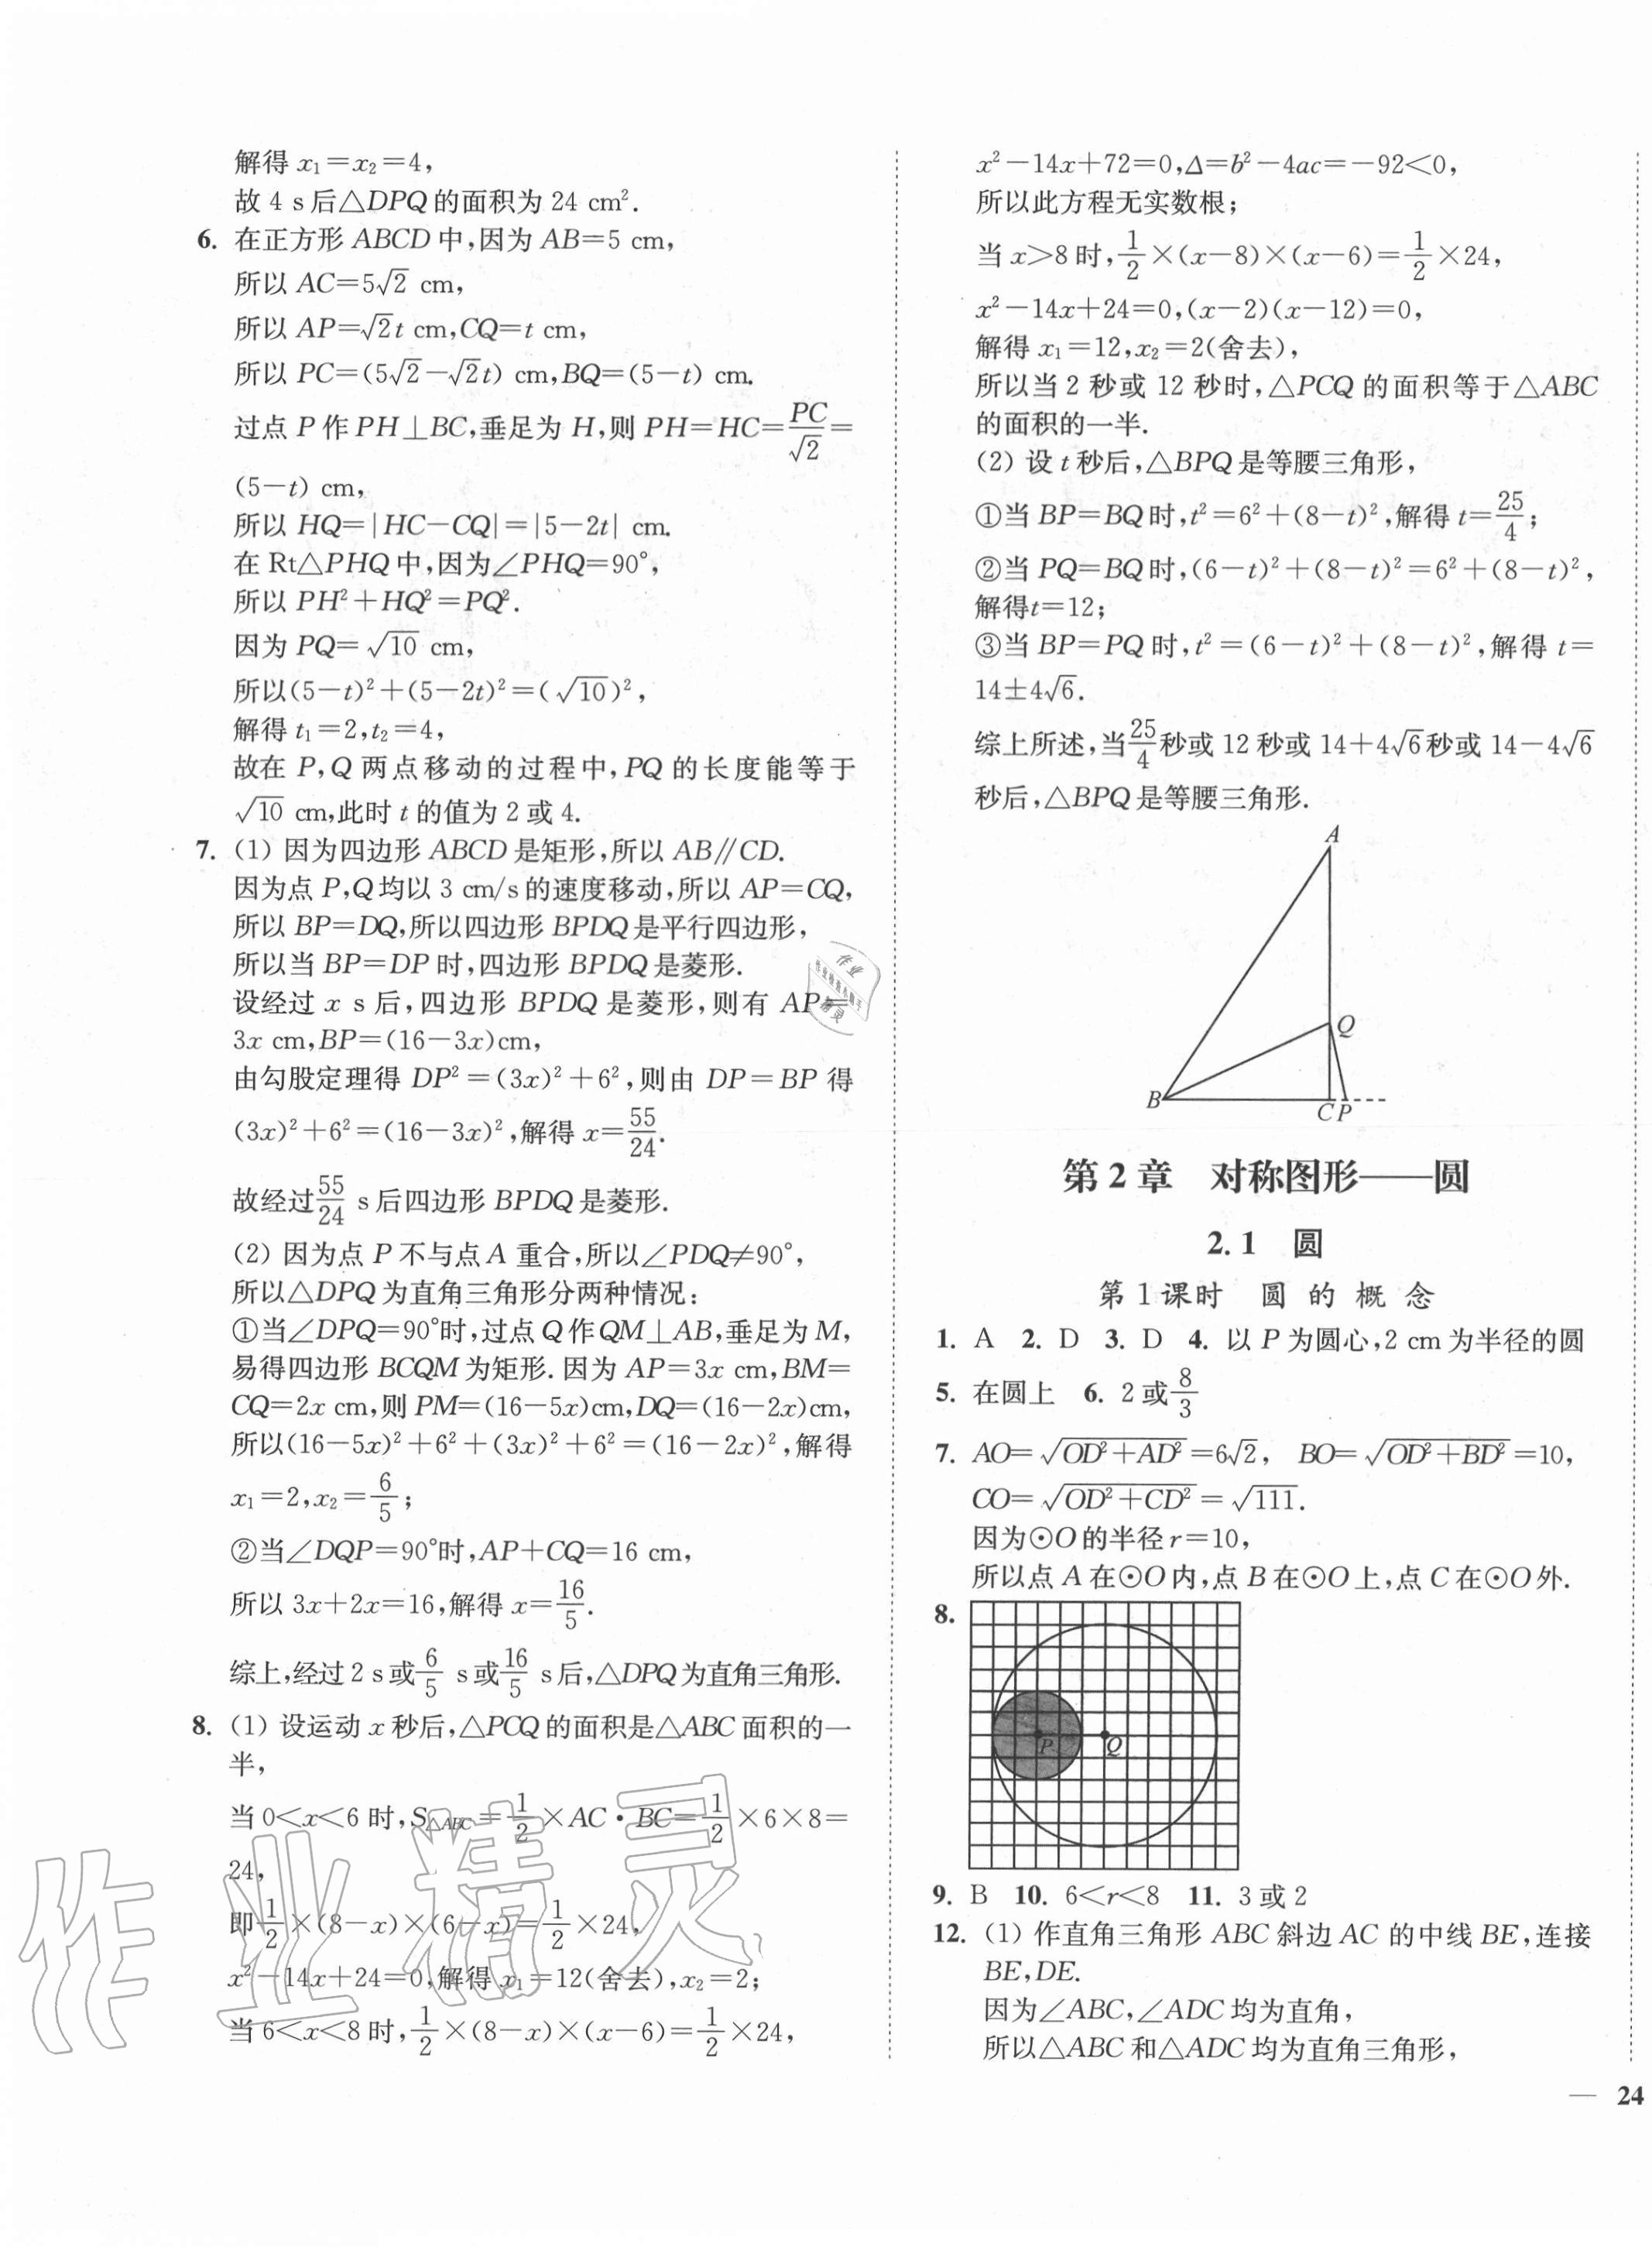 解得 x₁=x₂=4,
故 4 s后△DPQ的面积为 24 cm².
6. 在正方形 ABCD 中,因为 AB=5 cm,
所以 AC=5√2 cm,
所以 AP=√2t cm,CQ=t cm,
所以 PC=(5√2-√2t) cm,BQ=(5-t) cm.
过点 P 作 PH⊥BC,垂足为 H,则 PH=HC=PC/√2=
(5-t) cm,
所以 HQ=|HC-CQ|=|5-2t| cm.
在 Rt△PHQ 中,因为∠PHQ=90°,
所以 PH²+HQ²=PQ².
因为 PQ=√10 cm,
所以(5-t)²+(5-2t)²=(√10)²,
解得 t₁=2,t₂=4,
故在 P,Q 两点移动的过程中,PQ 的长度能等于
√10 cm,此时 t 的值为 2 或 4.
7. (1) 因为四边形 ABCD 是矩形,所以 AB∥CD.
因为点 P,Q均以 3 cm/s的速度移动,所以 AP=CQ,
所以 BP=DQ,所以四边形 BPDQ是平行四边形,
所以当 BP=DP 时,四边形 BPDQ是菱形.
设经过 x s 后,四边形 BPDQ 是菱形,则有 AP=
3x cm,BP=(16-3x)cm,
由勾股定理得 DP²=(3x)²+6²,则由 DP=BP 得
(3x)²+6²=(16-3x)²,解得 x=55/24.
故经过55/24 s后四边形 BPDQ是菱形.
(2) 因为点 P 不与点 A 重合,所以∠PDQ≠90°,
所以△DPQ为直角三角形分两种情况:
①当∠DPQ=90°时,过点 Q作QM⊥AB,垂足为 M,
易得四边形 BCQM 为矩形. 因为 AP=3x cm,BM=
CQ=2x cm,则 PM=(16-5x)cm,DQ=(16-2x)cm,
所以(16-5x)²+6²+(3x)²+6²=(16-2x)²,解得
x₁=2,x₂=6/5;
②当∠DQP=90°时,AP+CQ=16 cm,
所以 3x+2x=16,解得 x=16/5.
综上,经过 2 s或6/5 s或16/5 s后,△DPQ为直角三角形.
8. (1) 设运动 x 秒后,△PCQ的面积是△ABC 面积的一
半,
当 0<x<6 时,S△ABC=1/2×AC·BC=1/2×6×8=
24,
即1/2×(8-x)×(6-x)=1/2×24,
x²-14x+24=0,解得 x₁=12(舍去),x₂=2;
当 6<x<8 时,1/2×(8-x)×(x-6)=1/2×24,
x²-14x+72=0,Δ=b²-4ac=-92<0,
所以此方程无实数根;
当 x>8 时,1/2×(x-8)×(x-6)=1/2×24,
x²-14x+24=0,(x-2)(x-12)=0,
解得 x₁=12,x₂=2(舍去),
所以当 2 秒或 12 秒时,△PCQ 的面积等于△ABC
的面积的一半.
(2) 设 t 秒后,△BPQ是等腰三角形,
①当 BP=BQ 时,t²=6²+(8-t)²,解得 t=25/4;
②当 PQ=BQ 时,(6-t)²+(8-t)²=6²+(8-t)²,
解得t=12;
③当 BP=PQ 时,t²=(6-t)²+(8-t)²,解得 t=
14±4√6.
综上所述,当25/4秒或 12 秒或 14+4√6秒或 14-4√6
秒后,△BPQ是等腰三角形.
A
Q
B
C P
第 2 章 对称图形——圆
2.1 圆
第 1 课时 圆的概念
1. A 2. D 3. D 4. 以 P 为圆心,2 cm 为半径的圆
5. 在圆上 6. 2 或8/3
7. AO=√(OD²+AD²)=6√2, BO=√(OD²+BD²)=10,
CO=√(OD²+CD²)=√111.
因为⊙O的半径 r=10,
所以点 A 在⊙O内,点 B在⊙O上,点 C在⊙O外.
8.
P Q
9. B 10. 6<r<8 11. 3 或 2
12. (1) 作直角三角形 ABC 斜边 AC 的中线 BE,连接
BE,DE.
因为∠ABC,∠ADC 均为直角,
所以△ABC 和△ADC 均为直角三角形,
— 24
作业精灵